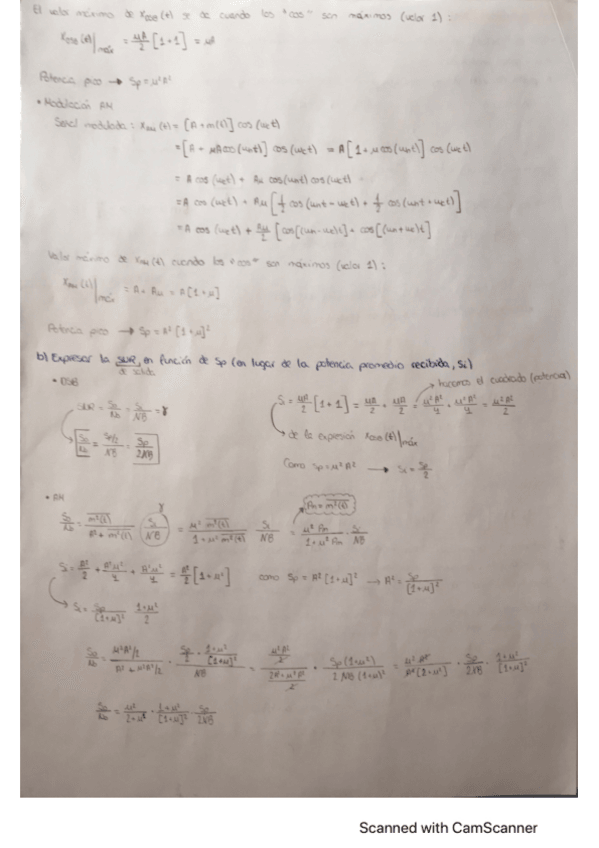 El valor máximo de x_DSB(t) se da cuando los "cos" son máximos (valor 1):
x_DSB(t)|máx = μA/2 [1+1] = μA
Potencia pico → Sp = μ²A²
• Modulación AM
Señal modulada: x_AM(t) = [A + m(t)] cos(ωct)
= [A + μA cos(ωmt)] cos(ωct) = A[1 + μ cos(ωmt)] cos(ωct)
= A cos(ωct) + Aμ cos(ωmt) cos(ωct)
= A cos(ωct) + Aμ [1/2 cos(ωmt - ωct) + 1/2 cos(ωmt + ωct)]
= A cos(ωct) + Aμ/2 [cos[(ωm-ωc)t] + cos[(ωm+ωc)t]
Valor máximo de x_AM(t) cuando los "cos" son máximos (valor 1):
x_AM(t)|máx = A + Aμ = A[1+μ]
Potencia pico → Sp = A²[1+μ]²
b) Expresar la SNR, en función de Sp (en lugar de la potencia promedio recibida, Si)
de salida
• DSB
SNR = So/No = Si/NB = γ
So/No = Sp/2/NB = Sp/2NB
Si = μA/2 [1+1] = μA/2 + μA/2 = μ²A²/4 + μ²A²/4 = μ²A²/2
hacemos el cuadrado (potencia)
de la expresión x_DSB(t)|máx
Como Sp = μ²A² → Si = Sp/2
• AM
γ
Pm = m²(t)
So/No = m²(t)/A² + m²(t) Si/NB = μ² m²(t)/1+μ² m²(t) Si/NB = μ² Pm/1+μ² Pm · Si/NB
Si = A²/2 + A²μ²/4 + A²μ²/4 = A²/2 [1+μ²] como Sp = A²[1+μ]² → A² = Sp/[1+μ]²
Si = Sp/[1+μ]² 1+μ²/2
So/No = μ²A²/2/A² + μ²A²/2 · Sp/2 · 1+μ²/[1+μ]²/NB = μ²A²/2/2A²+μ²A²/2 · Sp(1+μ²)/2NB(1+μ)² = μ²A²/A²[2+μ²] · Sp/2NB · 1+μ²/[1+μ]²
So/No = μ²/2+μ² · 1+μ²/[1+μ]² · Sp/2NB
Scanned with CamScanner